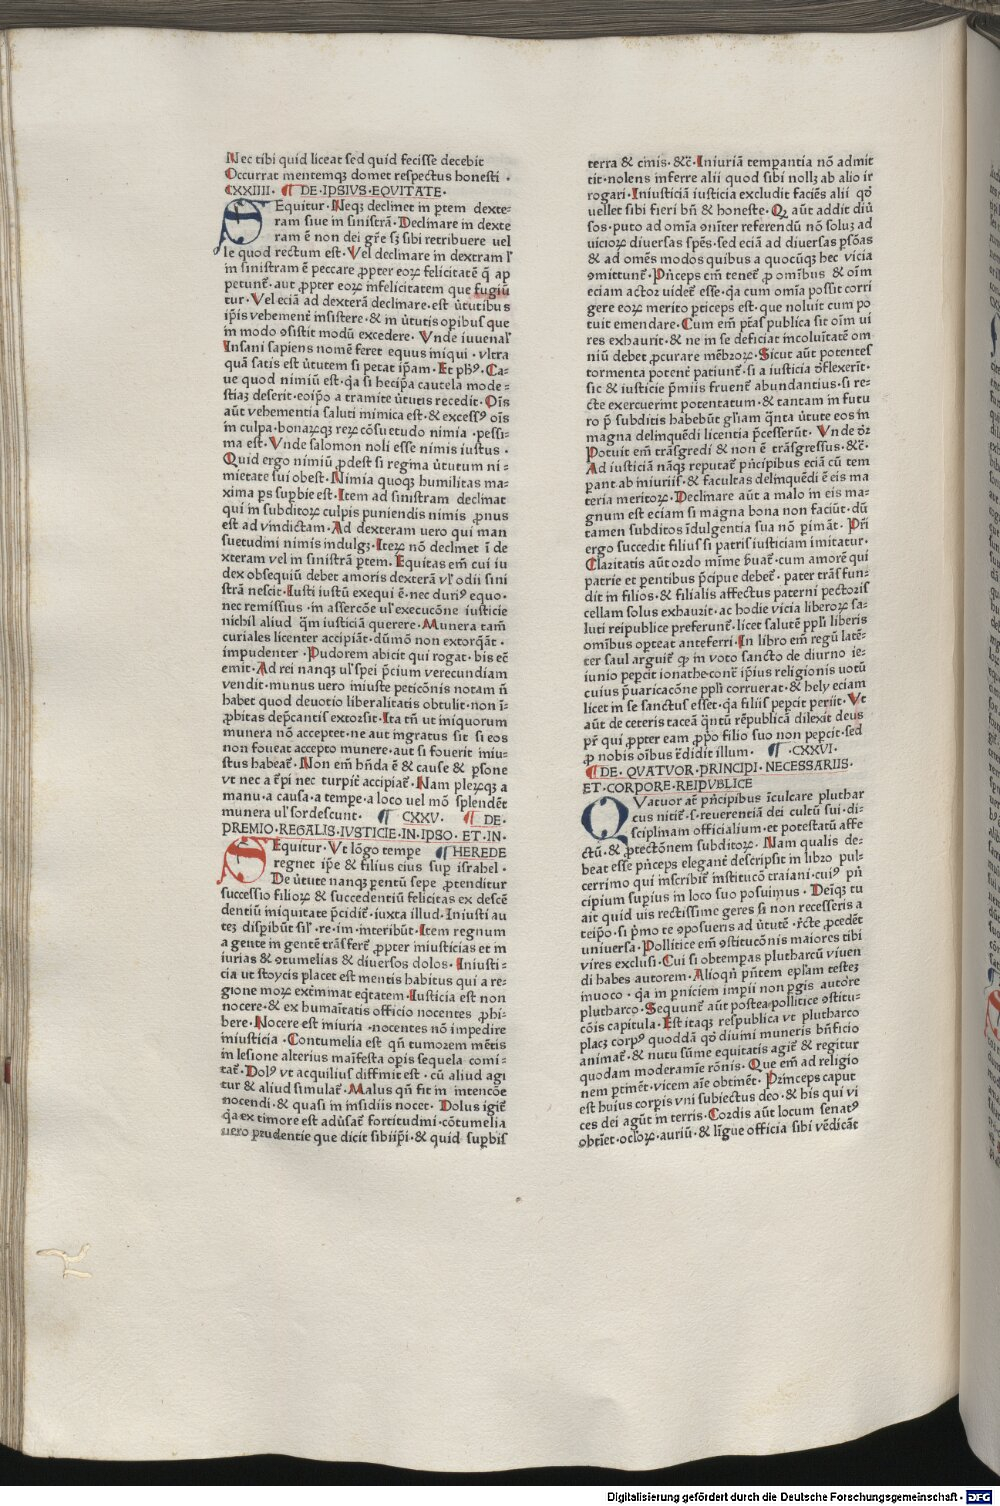 Nec tibi quid liceat sed quid fecisse decebit
Occurrat mentemqꝫ domet respectus honesti ·
CXXIIII · ¶ DE · IPSIVS · EQVITATE ·
SEquitur · Neqꝫ declinet in ꝑtem dexte⸗
ram siue in sinistrã · Declinare in dexte
ram ẽ non dei gr̃e sꝫ sibi retribuere uel
le quod rectum est · Vel declinare in dextram ƚ
in sinistram ẽ peccare ꝓpter eoꝝ felicitatẽ q̃ ap
petunt̃ · aut ꝓpter eoꝝ infelicitatem que fugiũ
tur · Vel eciã ad dexterã declinare · est ũtutibus
ip̃is vehement̃ insistere · & in ũtutis opibus que
in modo ↄsistit modũ excedere · Vnde iuuenal̃
Insani sapiens nomẽ feret equus iniqui · vltra
quã satis est ũtutem si petat ip̃am · Et ph̃ꝰ · Ca⸗
ue quod nimiũ est · q̃a si hec ip̃a cautela mode⸗
stiaꝫ deserit · eoip̃o a tramite ũtutis recedit · Oĩs
aũt vehementia saluti inimica est · & excessꝰ oĩs
in culpa · bonaꝝqꝫ reꝝ cõsuetudo nimia · pessi⸗
ma est · Vnde salomon noli esse nimis iustus ·
Quid ergo nimiũ ꝓdest si regina ũtutum ni⸗
mietate sui obest · Nimia quoqꝫ humilitas ma⸗
xima ps suꝑbie est · Item ad sinistram declinat
qui in subditoꝝ culpis puniendis nimis ꝓnus
est ad vindictam · Ad dexteram uero qui man
suetudini nimis indulgꝫ · Iteꝝ nõ declinet ĩ de
xteram vel in sinistrã ꝑtem · Equitas em̃ cui iu
dex obsequiũ debet amoris dexterã vƚ odii sini
strã nescit · Iusti iustũ exequi ẽ · nec duriꝰ equo ·
nec remissius · in assercõe uƚ execucõne iusticie
nichil aliud q̃m iusticiã querere · Munera tam̃
curiales licenter accipiãt · dũmõ non extorq̃ãt ·
impudenter · Pudorem abicit qui rogat · bis eẽ
emit · Ad rei nanqꝫ uƚ spei p̃cium verecundiam
vendit · munus uero iniuste peticõnis notam ñ
habet quod deuotio liberalitatis obtulit · non ĩ⸗
ꝓbitas dep̃cantis extorsit · Ita tñ ut iniquorum
munera nõ acceptet · ne aut ingratus sit si eos
non foueat accepto munere · aut si fouerit iniu⸗
stus habeat̃ · Non em̃ hñda ẽ & cause & ꝑsone
vt nec a t̃pi nec turpit̃ accipiat̃ · Nam pleꝝqꝫ a
manu · a causa · a tempe · a loco uel mõ splendẽt
munera uƚ sordescunt · ¶ CXXV · ¶ DE ·
PREMIO · REGALIS · IVSTICIE · IN · IPSO · ET · IN ·
SEquitur · Vt lõgo tempe ¶ HEREDE
regnet ip̃e & filius eius suꝑ israhel ·
De ũtute nanqꝫ ꝑentũ sepe ꝓtenditur
successio filioꝝ & succedentiũ felicitas ex descẽ
dentiũ iniquitate p̃cidit̃ · iuxta illud · Iniusti au
teꝫ disꝑibũt siƚ · re · im · interibũt · Item regnum
a gente in gentẽ trãsfert̃ ꝓpter iniusticias et in
iurias & ↄtumelias & diuersos dolos · Iniusti⸗
cia ut stoycis placet est mentis habitus qui a re⸗
gione moꝝ ext̃minat eq̃tatem · Iusticia est non
nocere · & ex humaĩtatis officio nocentes ꝓhi⸗
bere · Nocere est iniuria · nocentes nõ impedire
iniusticia · Contumelia est qñ tumorem mẽtis
in lesione alterius maĩfesta opis sequela comi⸗
tat̃ · Dolꝰ vt acquilius diffinit est · cũ aliud agi
tur & aliud simulat̃ · Malus qñ fit in intencõe
nocendi · & quasi in insidiis nocet · Dolus igit̃
q̃a ex timore est adũsat̃ fortitudini · cõtumelia
uero prudentie que dicit sibiip̃i · & quid suꝑbis
terra & cinis · &c̃ · Iniuriã temꝑantia nõ admit
tit · nolens inferre alii quod sibi nollꝫ ab alio ir
rogari · Iniusticiã iusticia excludit faciẽs alii qð
uellet sibi fieri bñ & honeste · Qꝫ aũt addit diũ
sos · puto ad omĩa ↄniter referendũ nõ soluꝫ ad
uicioꝝ diuersas sp̃es · sed eciã ad diuersas ꝑsõas
& ad omẽs modos quibus a quocũqꝫ hec vicia
ↄmittunt̃ · Pñceps em̃ tenet̃ ꝓ omĩbus & oĩm
eciam actor uidet̃ esse · q̃a cum omĩa possit corri
gere eoꝝ merito ꝑticeps est · que noluit cum po
tuit emendare · Cum em̃ ptãs publica sit oĩm ui
res exhaurit · & ne in se deficiat incoluĩtatẽ om
niũ debet ꝓcurare mẽbroꝝ · Sicut aũt potentes
tormenta potent̃ patiunt̃ · si a iusticia õflexerĩt ·
sic & iusticie p̃miis fruent̃ abundantius · si re⸗
cte exercuerint potentatum · & tantam in futu
ro p̃ subditis habebũt gl̃iam q̃nta ũtute eos in
magna delinquẽdi licentia p̃cesserũt · Vnde ð̃r
Potuit em̃ trãsgredi & non ẽ trãsgressus · &c̃ ·
Ad iusticiã nãqꝫ reputat̃ pñcipibus eciã cũ tem
ꝑant ab iniuriis · & facultas delinquẽdi ẽ eis ma
teria meritoꝝ · Declinare aũt a malo in eis ma⸗
gnum est eciam si magna bona non faciũt · dũ
tamen subditos ĩdulgentia sua nõ ꝑimãt · P̃ri
ergo succedit filius si patris iusticiam imitatur ·
Claritatis aũt ordo mĩme p̃uat̃ · cum amorẽ qui
patrie et ꝑentibus p̃cipue debet̃ · pater trãsfun⸗
dit in filios · & filialis affectus paterni pectoris
cellam solus exhaurit · ac hodie vicia liberoꝝ sa⸗
luti reipublice preferunt̃ · licet salutẽ ppl̃i liberis
omĩbus opteat anteferri · In libro em̃ regũ latẽ⸗
ter saul arguit̃ ꝙ in voto sancto de diurno ie⸗
iunio peꝑcit ionathe · cont̃ ip̃ius religionis uotũ
cuius p̃uaricacõne ppl̃i corruerat · & hely eciam
licet in se sanctus esset · q̃a filiis peꝑcit periit · Vt
aũt de ceteris taceã q̃ntũ rẽpublicã dilexit deus
p̃r qui ꝓpter eam ꝓp̃o filio suo non peꝑcit · sed
ꝓ nobis oĩbus t̃didit illum · ¶ · CXXVI ·
¶ DE · QVATVOR · PRINCIPI · NECESSARIIS ·
ET · CORPORE · REIPVBLICE
QVatuor at̃ pñcipibus ĩculcare pluthar
cus nitit̃ · s · reuerentiã dei cultũ sui · di⸗
sciplinam officialium · et potestatũ affe
ctũ · & ꝓtectõnem subditoꝝ · Nam qualis de⸗
beat esse pñceps elegant̃ descripsit in libro pul⸗
cerrimo qui inscribit̃ institucõ traiani · cuiꝰ pñ
cipium supius in loco suo posuimus · Deĩqꝫ tu
ait quid uis rectissime geres si non recesseris a
teip̃o · si p̃mo te ↄposueris ad ũtutẽ · r̃cte ꝓcedẽt
vniuersa · Pollitice em̃ ↄstitucõnis maiores tibi
vires exclusi · Cui si obtempas plutharcũ viuen
di habes autorem · Alioqñ p̃ntem ep̃lam testeꝫ
inuoco · q̃a in ꝑniciem impii non ꝑgis autore
plutharco · Sequunt̃ aũt postea pollitice ↄstitu⸗
cõis capitula · Est itaqꝫ respublica vt plutharco
placꝫ corpꝰ quoddã qð diuini muneris bñficio
animat̃ · & nutu sũme equitatis agit̃ & regitur
quodam moderamĩe rõnis · Que em̃ ad religio
nem ꝑtinẽt · vicem aĩe obtinẽt · Princeps caput
est huius corꝑis vni subiectus deo · & his qui vi
ces dei agũt in terris · Cordis aũt locum senatꝰ
obtĩet · ocloꝝ · auriũ · & lĩgue officia sibi vẽdicãt
Digitalisierung gefördert durch die Deutsche Forschungsgemeinschaft - DFG